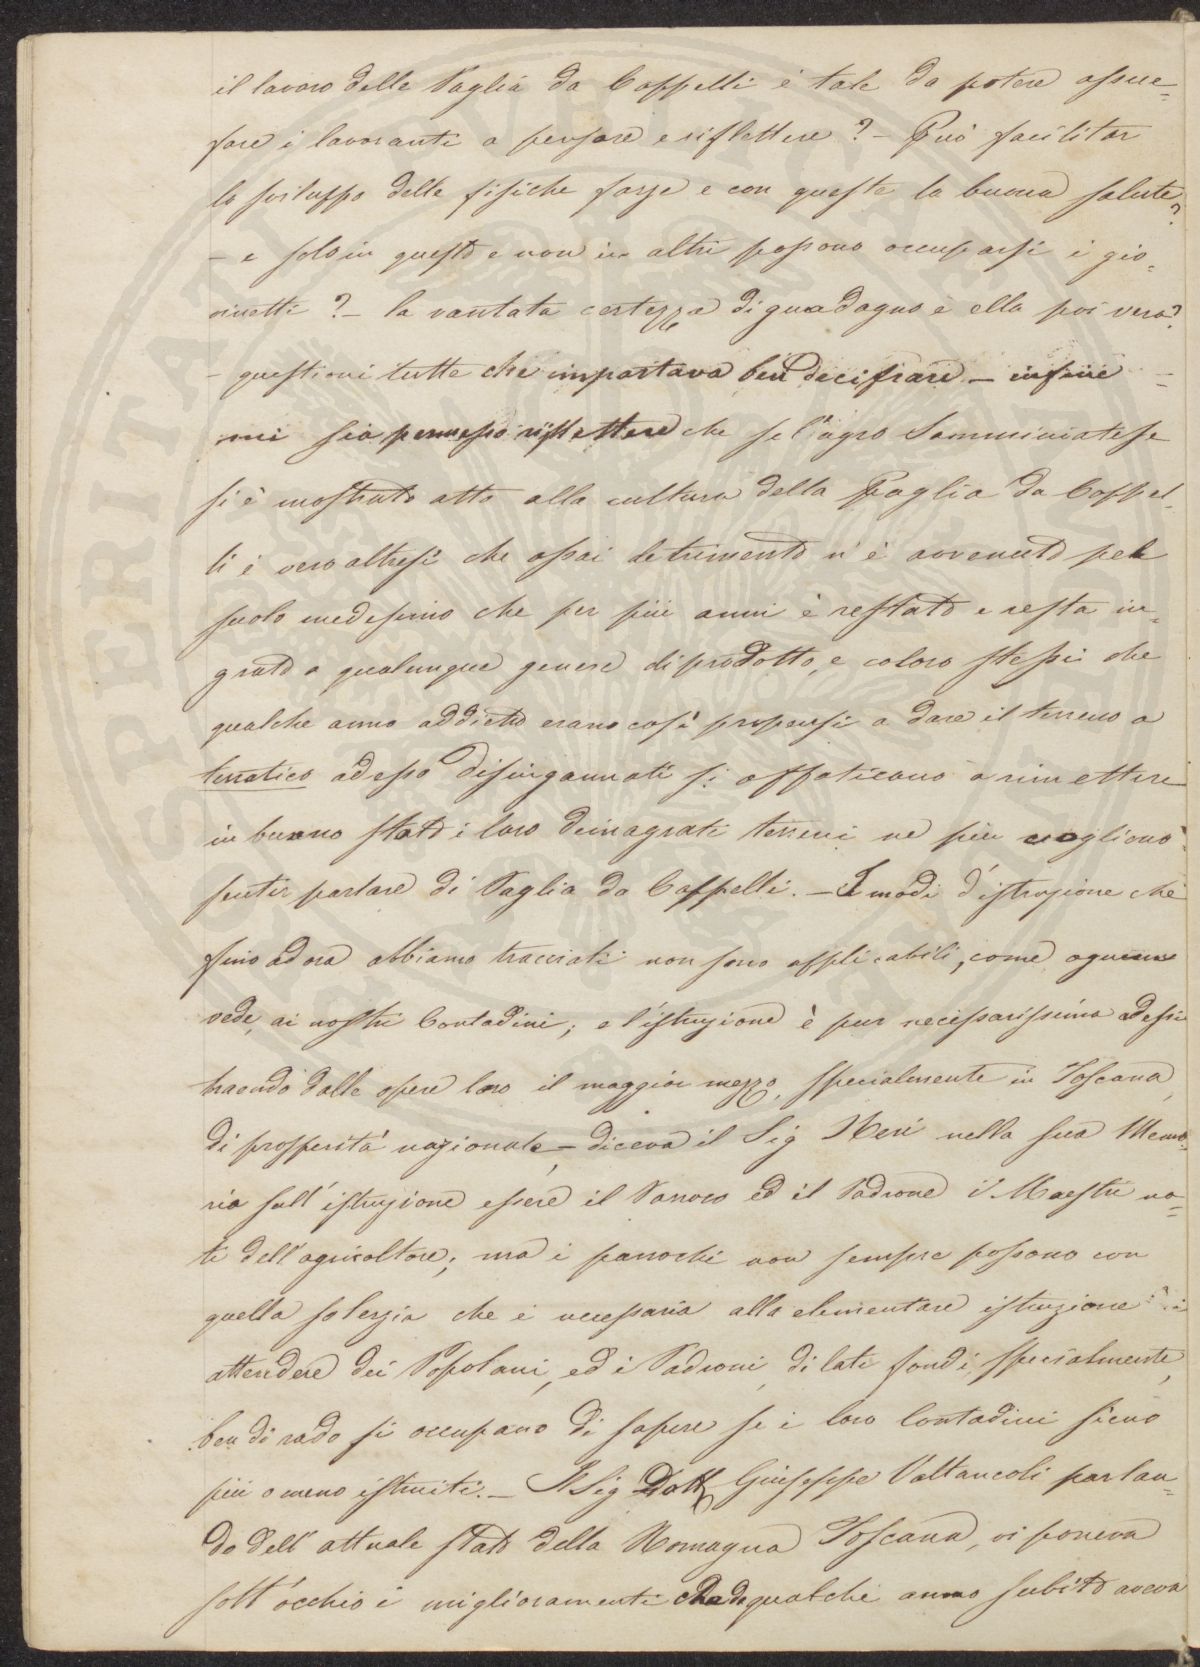 il lavoro della Paglia da Cappelli è tale da potere assue=
fare i lavoranti a pensare e riflettere? – Può facilitar
lo sviluppo delle fisiche forze e con queste la buona salute?
– e solo in questo e non in altri possono occuparsi i gio-
vinetti? – la vantata certezza di guadagno è ella poi vera?
– questioni tutte che importava ben decifrare – infine –
mi sia permesso riflettere che se l'agro Samminiatese
si è mostrato atto alla cultura della Paglia da Cappel-
li è vero altresì che assai detrimento n'è avvenuto pel
suolo medesimo che per più anni è restato e resta in-
grato a qualunque genere di prodotto, e coloro stessi che
qualche anno addietro erano così propensi a dare il terreno a
terratico adesso disingannati si affaticano a rimettere
in buono stato i loro dimagrati terreni ne più vogliono
sentir parlare di Paglia da Cappelli. – I modi d'istruzione che
fino ad ora abbiamo tracciati non sono applicabili, come ognuno
vede, ai nostri Contadini; e l'istruzione è pur necessarissima ad essi
traendo dalle opere loro il maggior mezzo, specialmente in Toscana,
di prosperità nazionale – diceva il Sig Neri nella sua Memo-
ria sull'istruzione essere il Parroco ed il Padrone i Maestri na=
ti dell'agricoltore; ma i parrochi non sempre possono con
quella solerzia che è necessaria alla elementare istruzione
attendere dei Popolani, ed i Padroni, di lati fondi specialmente,
ben di rado si occupano di sapere se i loro Contadini sieno
più o meno istruiti. – Il Sig Dott Giuseppe Valtancoli parlan=
do dell'attuale stato della Romagna Toscana, vi poneva
sott'occhio i miglioramenti che da qualche anno subito aveva